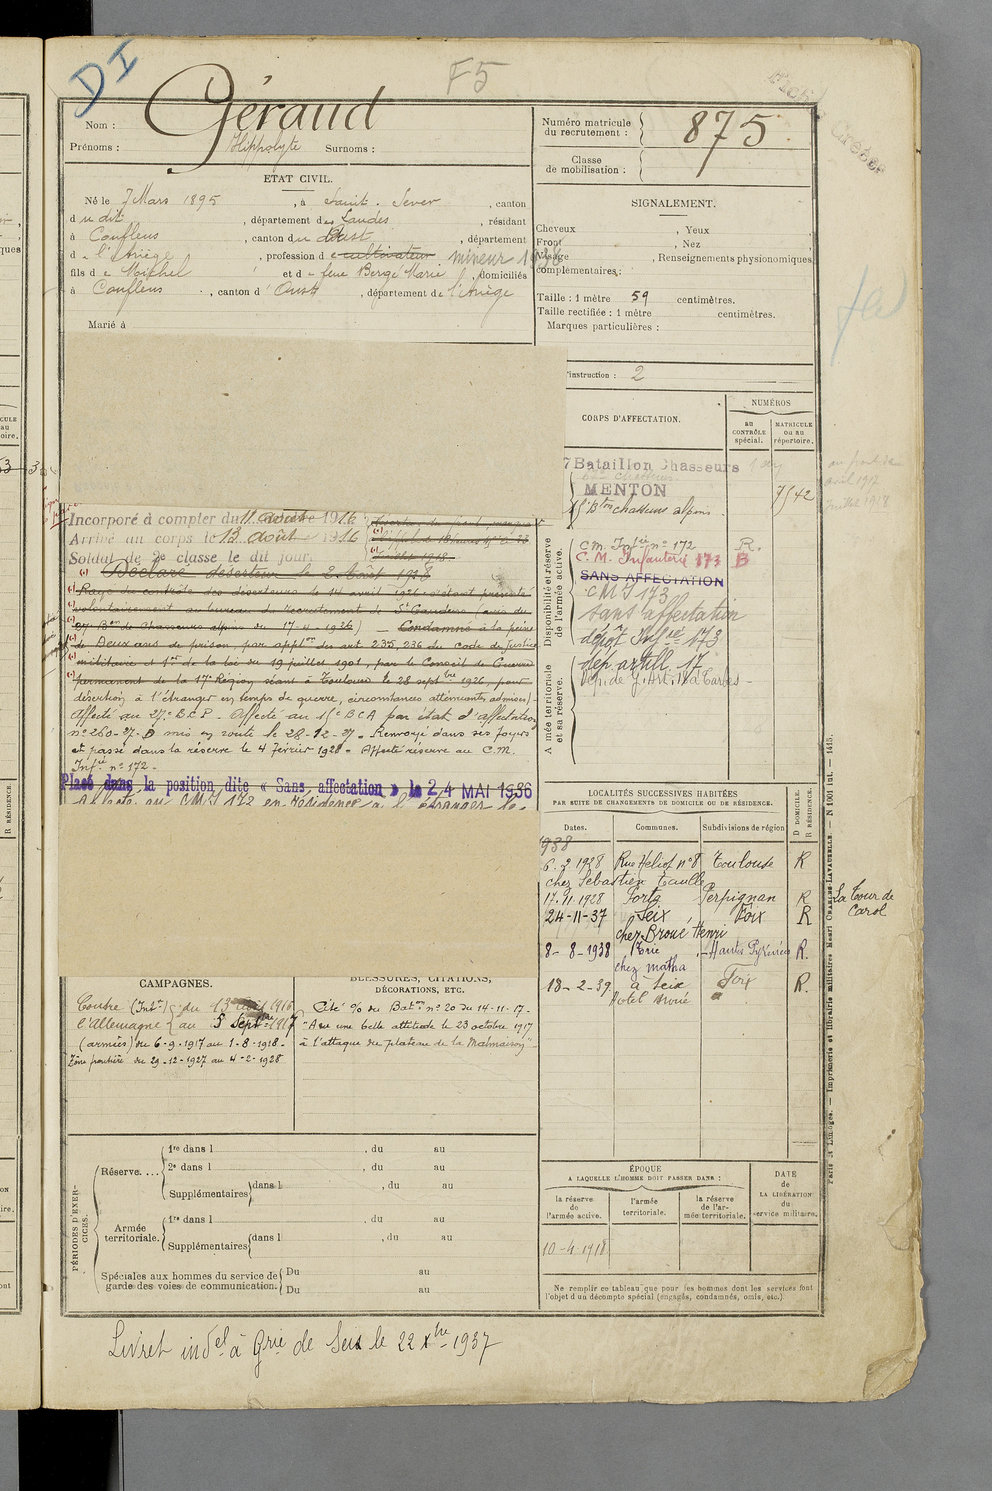 DI
F5
Nom : Géraud
Prénoms : Hippolyte Surnoms :
Numéro matricule du recrutement : 875
Classe de mobilisation :
ETAT CIVIL.
Né le 7 Mars 1895, à Saint-Sever, canton
du dit, département des Landes, résidant
à Couflens, canton d'Oust, département
de l'Ariège, profession de cultivateur mineur 1938
fils de et de feue Berge Marie, domiciliés
à Couflens, canton d'Oust, département de l'Ariège
Marié à
SIGNALEMENT.
Cheveux , Yeux
Front , Nez
Visage , Renseignements physionomiques
complémentaires :
Taille : 1 mètre 59 centimètres.
Taille rectifiée : 1 mètre centimètres.
Marques particulières :
l'instruction : 2
CORPS D'AFFECTATION.
NUMÉROS
au CONTRÔLE spécial.
MATRICULE ou au répertoire.
7 Bataillon Chasseurs
MENTON
15e Bton chasseurs alpins. 7542
Disponibilité et réserve de l'armée active.
C.M. Infie n° 172 R.
C. M. Infanterie 173 B
SANS AFFECTATION
CMI 173
sans affectation
dépôt Infie 173
Armée territoriale et sa réserve.
dép. artill. 17
Dép. de J. Art. 17 à Tarbes
Incorporé à compter du 11 août 1916
Arrivé au corps le 13 août 1916
Soldat de 2e classe le dit jour.
Déclaré déserteur le 2 Août 1918
Rayé du contrôle des déserteurs le 14 avril 1926 s'étant présenté
volontairement au bureau de recrutement de St Gaudens (avis du
27 Bon de Chasseurs alpins du 17-4-1926) — Condamné à la peine
de Deux ans de prison, par appton des art 235, 236 du code de justice
militaire et 1er de la loi du 19 juillet 1901, par le Conseil de Guerre
permanent de la 17e Région, séant à Toulouse le 28 septbre 1926, pour
désertion à l'étranger en temps de guerre, circonstances atténuantes admises
Affecté au 27e B.C.P. - Affecté au 15e BCA par état d'affectation
n° 260-27-D mis en route le 28-12-27 - Renvoyé dans ses foyers
et passé dans la réserve le 4 Février 1928 - Affecté réserve au C.M.
Infie n° 172 -
Placé dans la position dite « Sans affectation » le 24 MAI 1936
Affecté au CMI 172 en résidence à l'étranger le
LOCALITÉS SUCCESSIVES HABITÉES
PAR SUITE DE CHANGEMENTS DE DOMICILE OU DE RÉSIDENCE.
D DOMICILE. R RÉSIDENCE.
Dates. Communes. Subdivisions de région
1938
6-2 1928 Rue Héliot n° 8 Toulouse R
chez Sébastien Taulle
17-11 1928 Porta Perpignan R La Tour de Carol
24-11-37 Seix Foix R
chez Broué Henri
8-8-1938 Trie Hautes Pyrénées R.
chez matha
18-2-39. à Seix Foix R.
Hotel Broué
CAMPAGNES.
Contre (Intr) du 13 août 1916
l'Allemagne au 5 Septbre 1917
(armées) du 6-9-1917 au 1-8-1918-
Zône frontière du 29-12-1927 au 4-2-1928
BLESSURES, CITATIONS,
DÉCORATIONS, ETC.
Cité % du Baton n° 20 du 14-11-17-
"A eu une belle attitude le 23 octobre 1917
à l'attaque du plateau de la Malmaison"
PÉRIODES D'EXERCICES.
Réserve.... 1re dans l , du au
2e dans l , du au
Supplémentaires dans l , du au
Armée territoriale. 1re dans l , du au
Supplémentaires dans l , du au
Spéciales aux hommes du service de garde des voies de communication. Du au
Du au
ÉPOQUE
A LAQUELLE L'HOMME DOIT PASSER DANS :
la réserve de l'armée active.
l'armée territoriale.
la réserve de l'armée territoriale.
DATE de LA LIBÉRATION du service militaire.
10-4-1918
Ne remplir ce tableau que pour les hommes dont les services font
l'objet d'un décompte spécial (engagés, condamnés, omis, etc.)
Paris et Limoges. — Imprimerie et librairie militaires Henri CHARLES-LAVAUZELLE. — N 1001 Int. — 1415.
Livret indel à Grie de Seix le 22 Xbre 1937